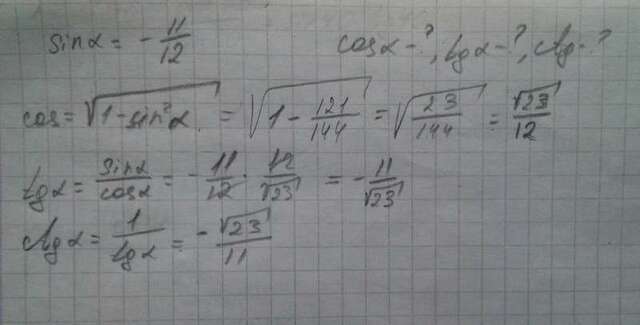 sinα = - 11/12 cosα - ?, tgα - ?, ctg - ?
cos = √(1-sin²α) = √(1 - 121/144) = √(23/144) = √23/12
tgα = sinα/cosα = - 11/12 · 12/√23 = - 11/√23
ctgα = 1/tgα = - √23/11